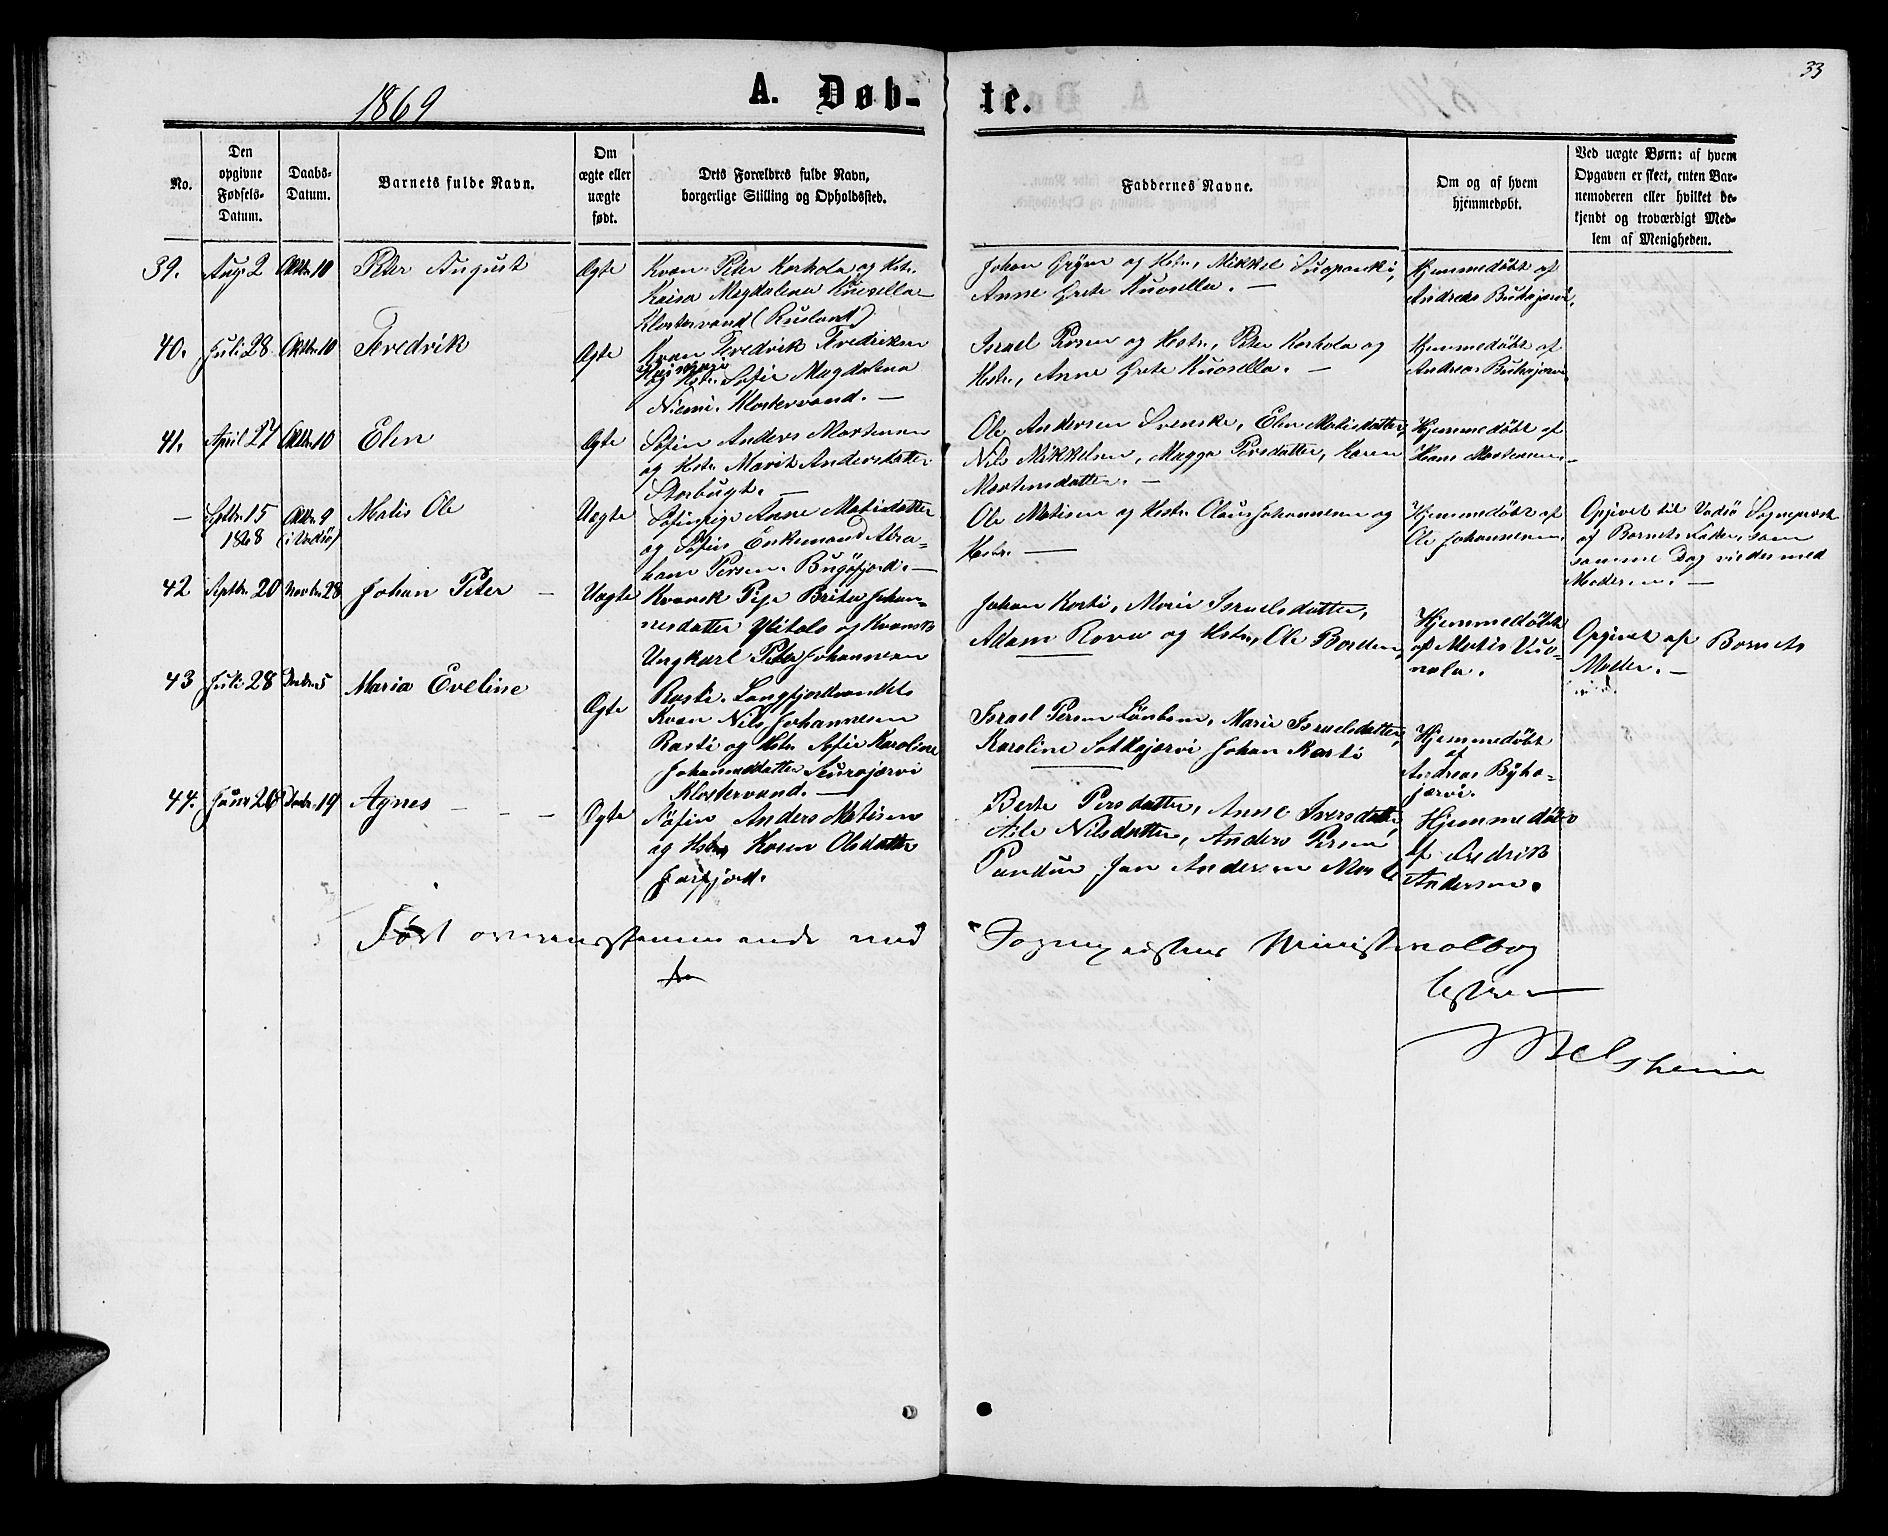 33
1869
A. Døb-
te.
No.
Den
opgivne
Fødsels-
Datum.
Daabs-
Datum.
Barnets fulde Navn.
Om
ægte eller
uægte
født.
Dets Forældres fulde Navn,
borgerlige Stilling og Opholdssted.
Faddernes Navne.
Om og af hvem
hjemmedøbt.
Ved uægte Børn: af hvem
Opgaven er skeet, enten Bar-
nemoderen eller hvilket be-
kjendt og troværdigt Med-
lem af Menigheden.
39. Aug. 2 Oktbr. 10 Peter August Ægte
Kvæn Peter Korkola og Hstr.
Kaisa Magdalena Kuosella
Klostervand (Rusland)
Johan Grÿn og Hstr., Mikkel
Anne Grete Kuosella. —
Hjemmedøbt af
Andreas
40. Juli 28 Oktbr. 10 Fredrik Ægte
Kvæn Fredrik Fredriksen
og Hstr. Sofie Magdalena
Niemi. Klostervand. —
Israel Persen og Hstr., Peter Korkola og
Hstr., Anne Grete Kuosella. —
Hjemmedøbt af
Andreas
41. April 27 Oktbr. 10 Elen Ægte
Søfin Anders Mortensen
og Hstr. Marit Andersdatter
Storbugt. —
Ole Andersen Svenske, Elen Matisdatter,
Nils Mikkelsen, Magga Persdatter, Karen
Mortensdatter. —
Hjemmedøbt af
Hans Mortensen
— Septbr. 15 Oktbr. 9 Matis Ole Uægte
1868 (i Vadsø)
Søfinpige Anne Matisdatter
og Søfin Enkemand Abra-
ham Persen. Bugøfjord. —
Ole Matisen og Hstr. Olaus Johannesen og
Hstr. —
Hjemmedøbt af
Ole Johannesen
Opgivet til Vadsø Sognepræst
af Barnets Fader, som
samme Dag viedes med
Moderen. —
42 Septbr. 20 Novbr. 28 Johan Peter — Uægte
Kvænsk Pige Brita Johan-
nesdatter Ylitalo og Kvænsk
Ungkarl Peter Johannesen
Rasti. Langfjordvandets
Johan Rasti, Marie Israelsdatter,
Adam Rova og Hstr., Ole Borden,
Hjemmedøbt
af Matis
nola.
Opgivet af Barnets
Moder. —
43 Juli 28 Decbr. 5 Maria Eveline Ægte
Kvæn Nils Johannesen
Rasti og Hstr. Sofie Karoline
Johannesdatter Seurujærvi
Klostervand. —
Israel Persen Lønbom, Marie Israelsdatter,
Karoline Sotkajærvi Johan Rasti
Hjemmedøbt
af
Andreas Byha-
jærvi.
44. Decbr. 19 Agnes — — — Ægte
Søfin Anders Matisen
og Hstr. Karen Olsdatter
Jarfjord.
Berte Persdatter, Anne Iversdatter,
Nilsdatter, Anders Persen
Jan Andersen
Hjemmedøbt
af Fredrik
Andersen.
Ført overensstemmende med
Sognepræstens Ministerialbog